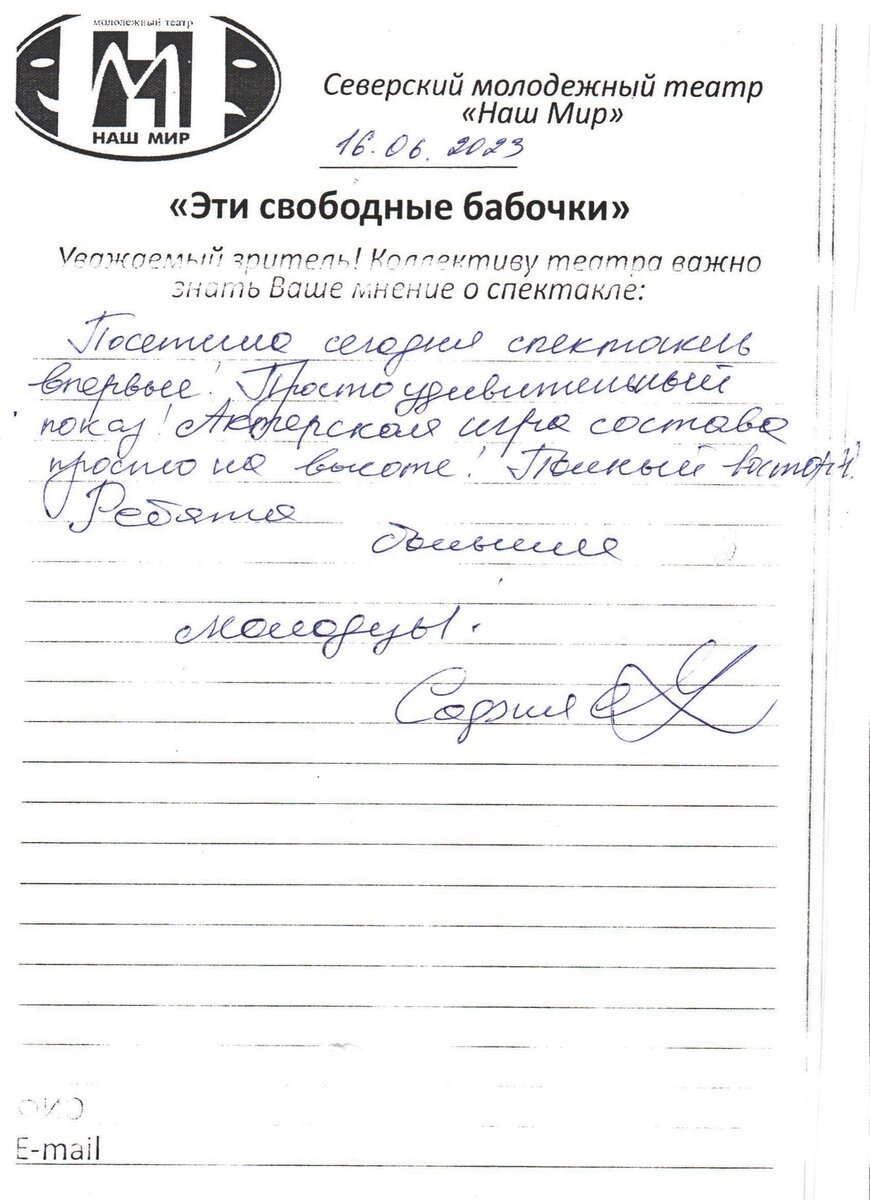 молодежный театр
НАШ МИР
Северский молодежный театр
«Наш Мир»
16.06.2023
«Эти свободные бабочки»
Уважаемый зритель! Коллективу театра важно
знать Ваше мнение о спектакле:
Посетила сегодня спектакль
впервые! Просто удивительный
показ! Актерская игра состава
просто на высоте! Полный восторг!
Ребята
большие
молодцы!
София
E-mail